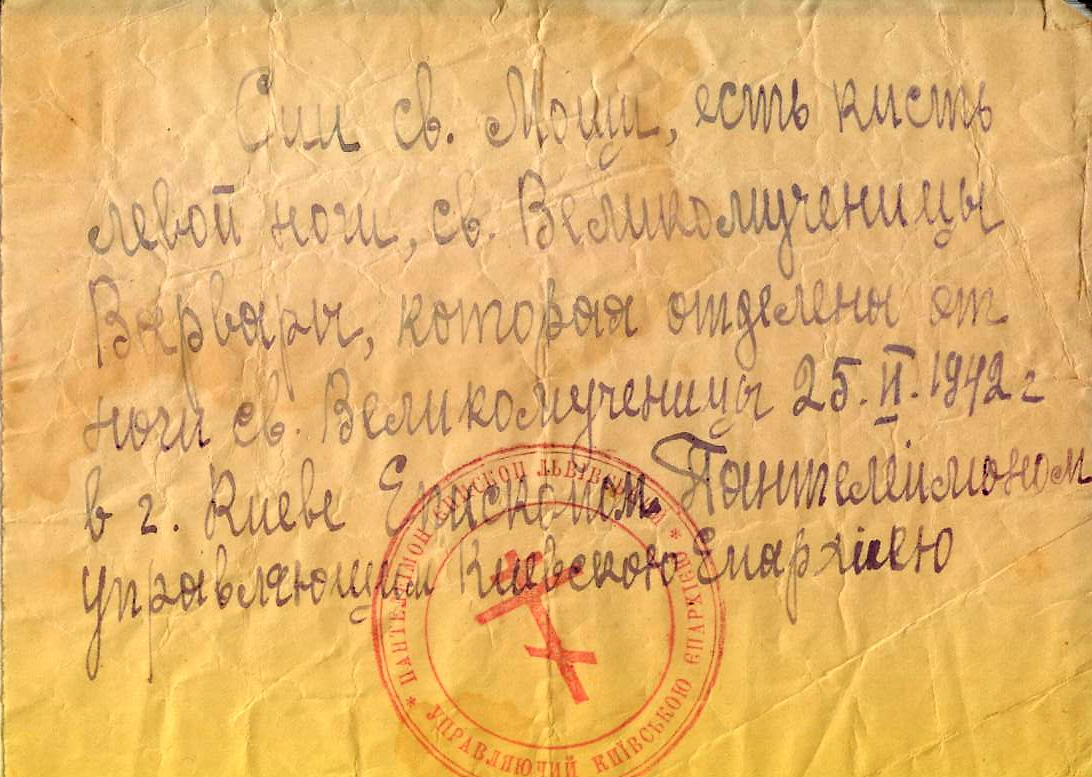 Сии св. Мощи, есть кисть
левой ноги, св. Великомученицы
Варвары, которая отделена от
ноги св. Великомученицы 25.II.1942 г
в г. Киеве Епископом Пантелеймоном
управляющим Киевскою Епархіею
* ПАНТЕЛЕІМОН ЄПИСКОП ЛЬВІВСЬКИЙ * УПРАВЛЯЮЧИЙ КИЇВСЬКОЮ ЄПАРХІЄЮ